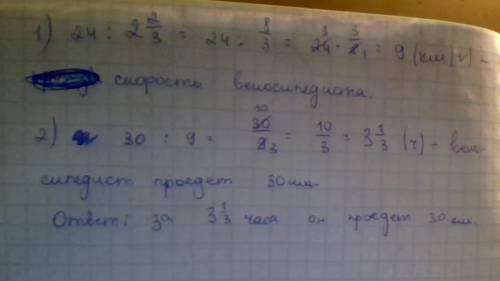 1) 24 : 2 2/3 = 24 : 8/3 = 24 3 · 3/8 1 = 9 (км/ч) -
скорость велосипедиста.
2) 30 : 9 = 30 10/9 3 = 10/3 = 3 1/3 (ч) - вело-
сипедист проедет 30 км.
Ответ: за 3 1/3 часа он проедет 30 км.